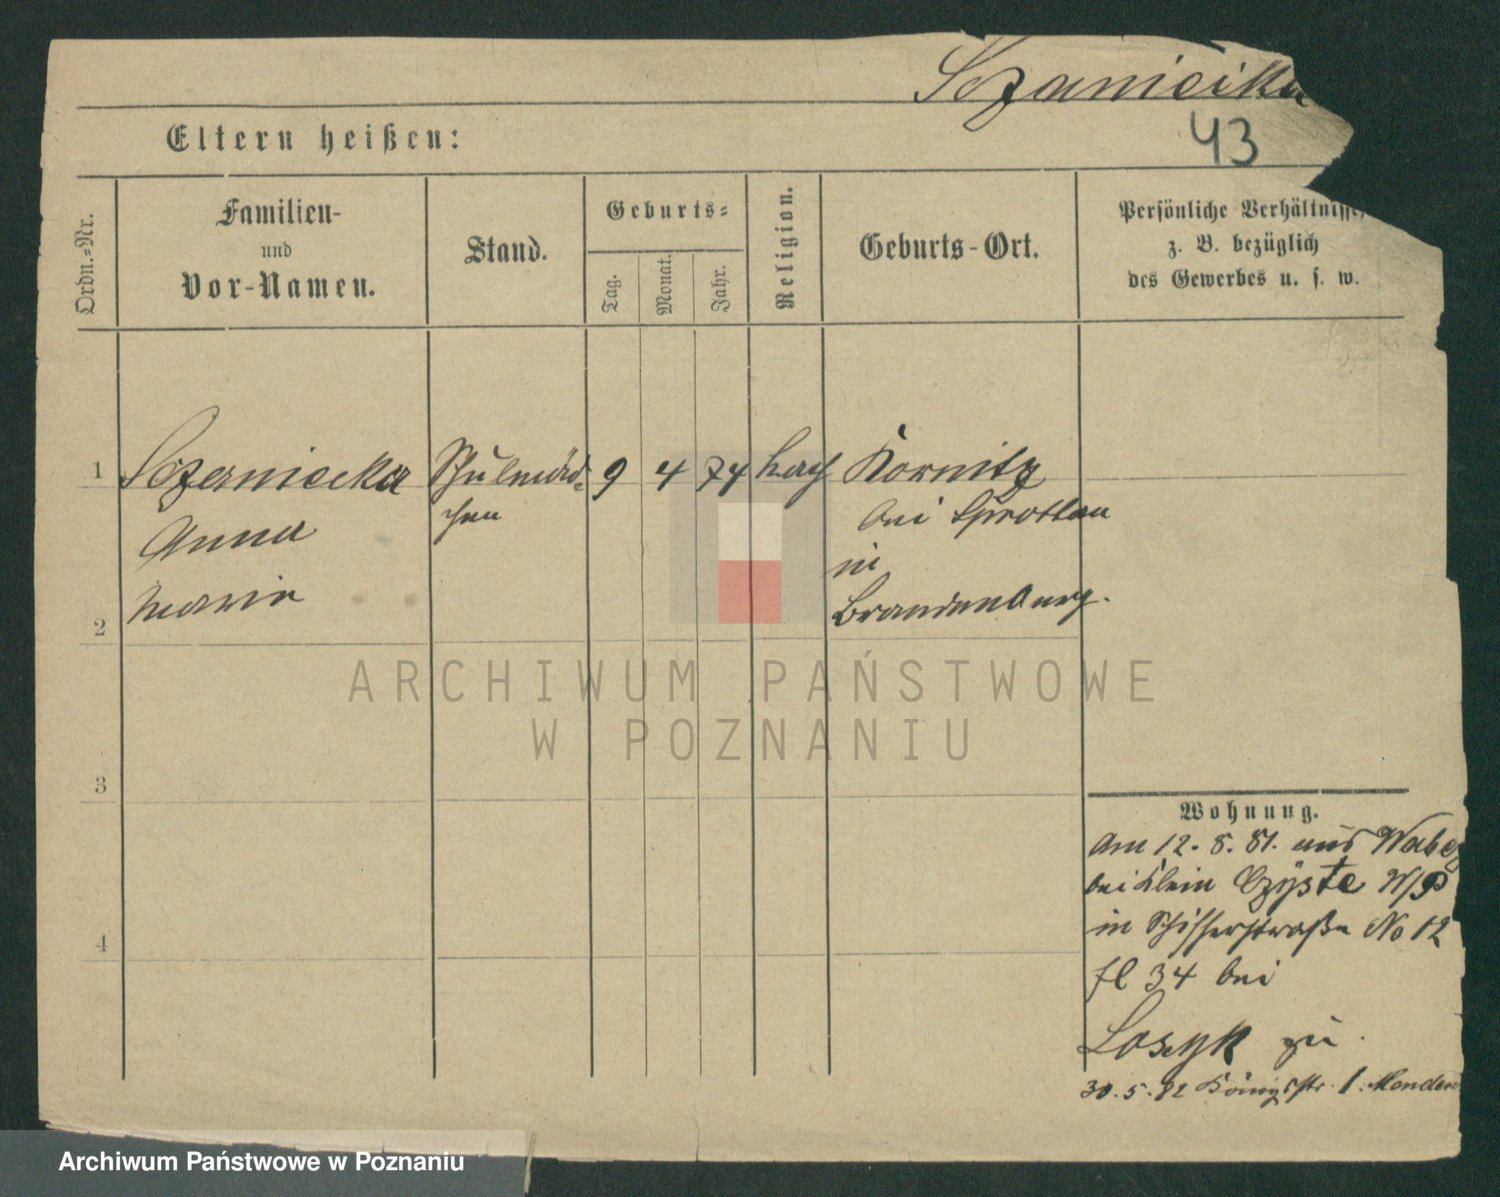 Szaniecka
43
Eltern heißen:
Ordn.-Nr.
Familien-
und
Vor-Namen.
Stand.
Geburts-
Tag.
Monat.
Jahr.
Religion.
Geburts-Ort.
Persönliche Verhältnisse,
z. B. bezüglich
des Gewerbes u. s. w.
1
Szaniecka
Schulmäd-
9
4
74
kath
Kornitz
chen
bei Sprottau
Anna
in
Maria
Brandenburg.
2
ARCHIWUM PAŃSTWOWE
W POZNANIU
3
Wohnung.
Am 12. 8. 81. aus
bei Klein Czyste W/P
4
in Schifferstraße No 12
fl 34 bei
zu
30. 5. 82 Königsstr. 1.
Archiwum Państwowe w Poznaniu